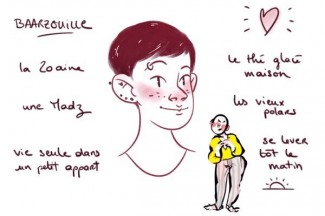 BAARZOUILLE
la 20aine
une Madz
vie seule dans
un petit appart
le thé glacé
maison
les vieux
polars
se lever
tôt le
matin